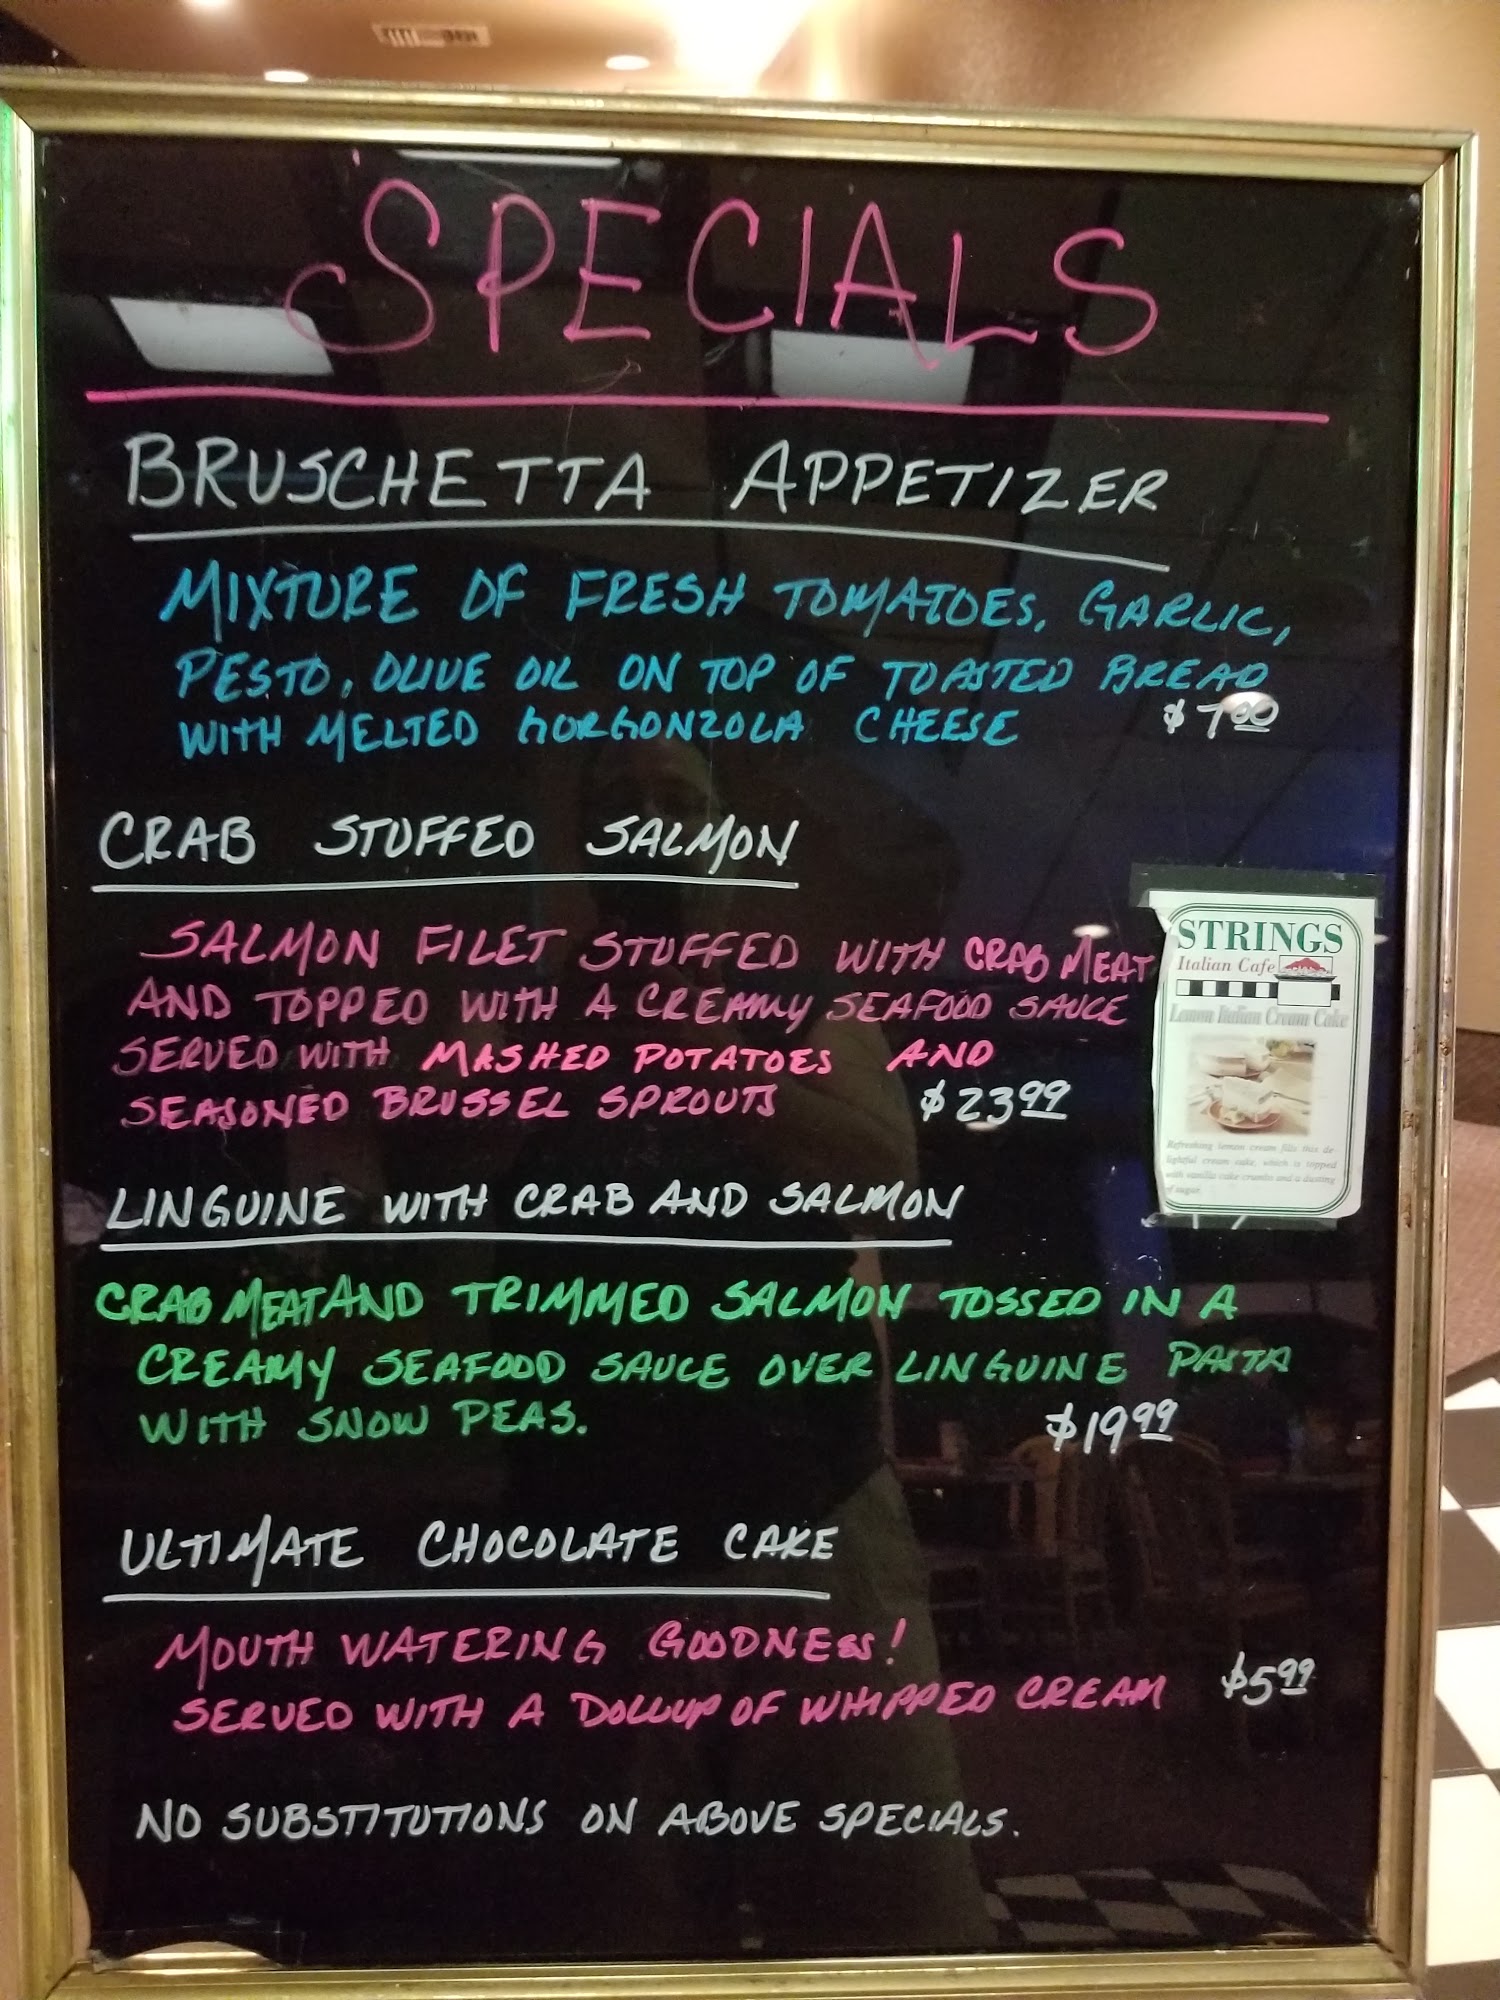 SPECIALS
BRUSCHETTA APPETIZER
MIXTURE OF FRESH TOMATOES, GARLIC,
PESTO, OLIVE OIL ON TOP OF TOASTED BREAD
WITH MELTED GORGONZOLA CHEESE $7.00
CRAB STUFFED SALMON
SALMON FILET STUFFED WITH CRAB MEAT
AND TOPPED WITH A CREAMY SEAFOOD SAUCE
SERVED WITH MASHED POTATOES AND
SEASONED BRUSSEL SPROUTS $23.99
STRINGS
Italian Cafe
Lemon Italian Cream Cake
Refreshing lemon cream fills this de-
lightful cream cake, which is topped
with vanilla cake crumbs and a dusting
of sugar.
LINGUINE WITH CRAB AND SALMON
CRAB MEAT AND TRIMMED SALMON TOSSED IN A
CREAMY SEAFOOD SAUCE OVER LINGUINE PASTA
WITH SNOW PEAS. $19.99
ULTIMATE CHOCOLATE CAKE
MOUTH WATERING GOODNESS!
SERVED WITH A DOLLUP OF WHIPPED CREAM $5.99
NO SUBSTITUTIONS ON ABOVE SPECIALS.